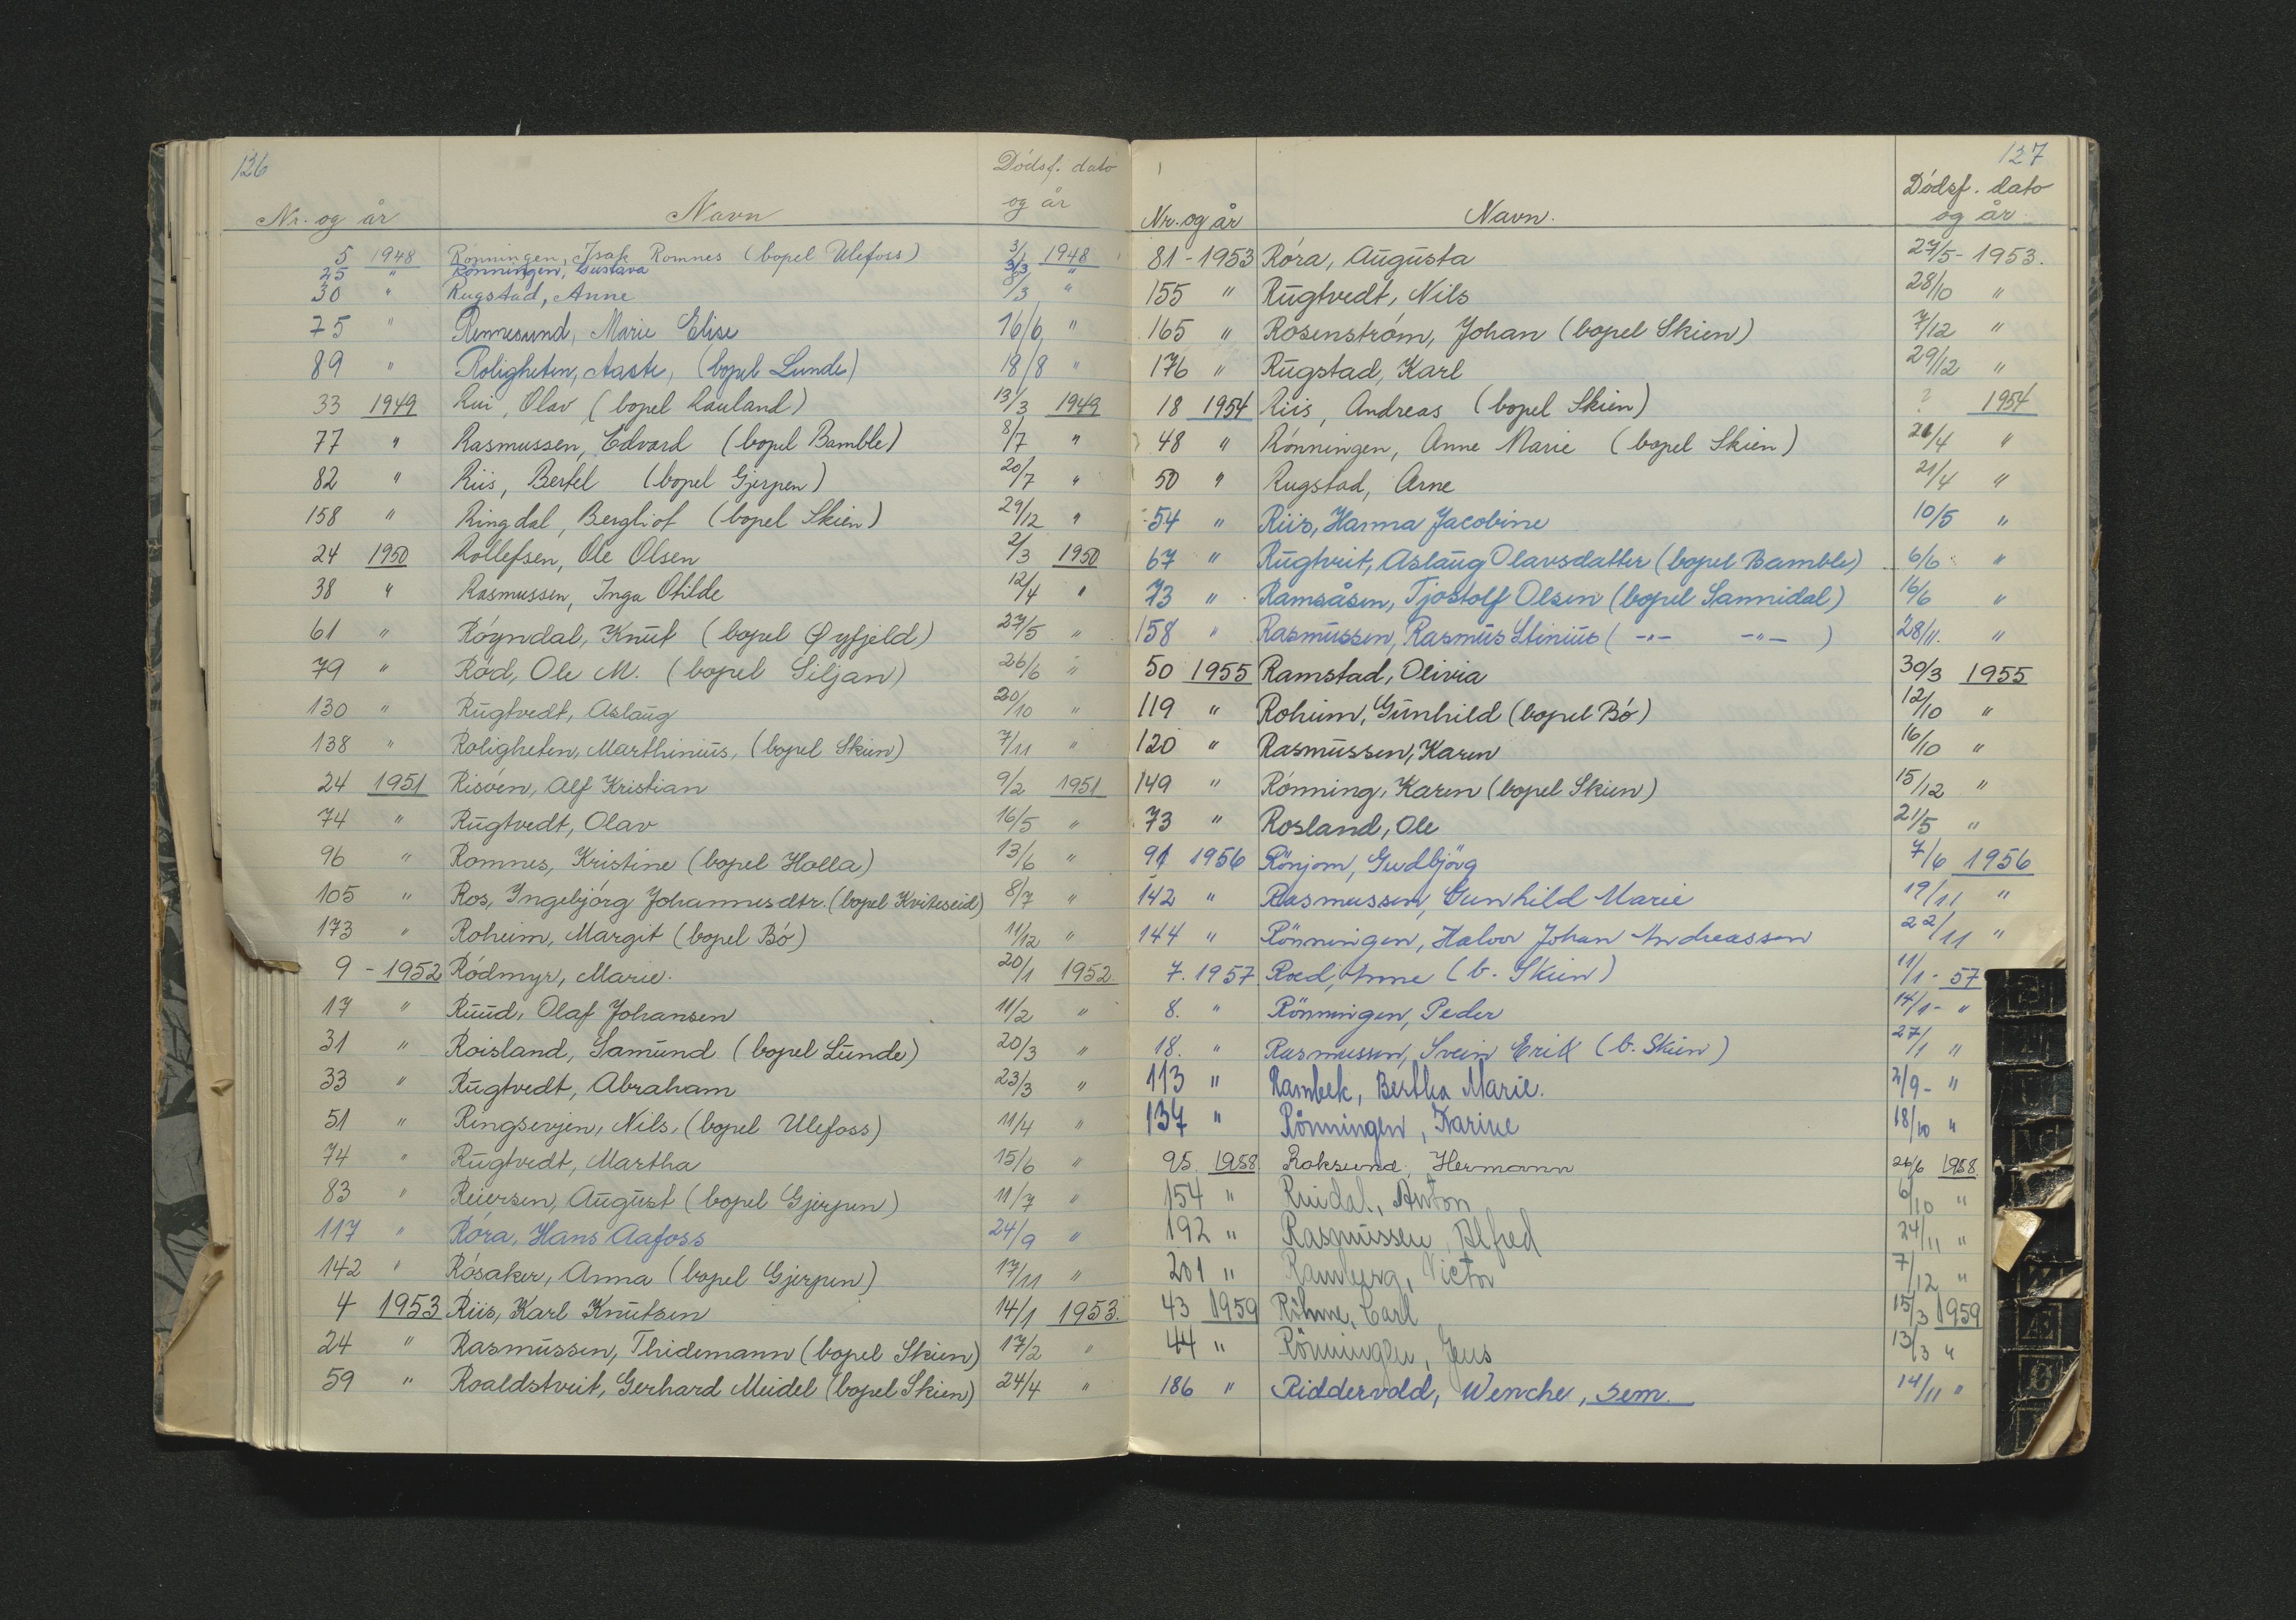 126
Nr. og år Navn Dødsf. dato og år
5 1948 Rönningen, Isak Romnes (bopel Ulefoss) 3/1 1948
25 " Rönningen, Gustava 3/3 "
30 " Rugstad, Anne 8/3 "
75 " Rennesund, Marie Elise 16/6 "
89 " Roligheten, Aaste, (bopel Lunde) 18/8 "
33 1949 Rui, Olav (bopel Rauland) 13/3 1949
77 " Rasmussen, Edvard (bopel Bamble) 8/7 "
82 " Riis, Bertel (bopel Gjerpen) 20/7 "
158 " Ringdal, Bergliot (bopel Skien) 29/12 "
24 1950 Rollefsen, Ole Olsen 2/3 1950
38 " Rasmussen, Inga Otilde 12/4 "
61 " Röyndal, Knut (bopel Øyfjeld) 27/5 "
79 " Röd, Ole M. (bopel Siljan) 26/6 "
130 " Rugtvedt, Aslaug 20/10 "
138 " Roligheten, Marthinius, (bopel Skien) 7/11 "
24 1951 Risöen, Alf Kristian 9/2 1951
74 " Rugtvedt, Olav 16/5 "
96 " Romnes, Kristine (bopel Holla) 13/6 "
105 " Ros, Ingebjörg Johannesdtr. (bopel Kviteseid) 8/7 "
173 " Roheim, Margit (bopel Bö) 11/12 "
9 - 1952 Ródmyr, Marie. 20/1 1952
17 " Ruud, Olaf Johansen 11/2 "
31 " Roisland, Samund (bopel Lunde) 20/3 "
33 " Rugtvedt, Abraham 23/3 "
51 " Ringsevjen, Nils, (bopel Ulefoss) 11/4 "
74 " Rugtvedt, Martha 15/6 "
83 " Reiersen, August (bopel Gjerpen) 11/7 "
117 " Róra, Hans Aafoss 24/9 "
142 " Rósaker, Anna (bopel Gjerpen) 17/11 "
4 1953 Riis, Karl Knutsen 14/1 1953.
24 " Rasmussen, Thidemann (bopel Skien) 17/2 "
59 " Roaldstveit, Gerhard Meidel (bopel Skien) 24/4 "
127
Nr. og år Navn. Dødsf. dato og år
81 - 1953 Róra, Augusta 27/5 - 1953.
155 " Rugtvedt, Nils 28/10 "
165 " Rosenström, Johan (bopel Skien) 7/12 "
176 " Rugstad, Karl 29/12 "
18 1954 Riis, Andreas (bopel Skien) ? 1954
48 " Rónningen, Anne Marie (bopel Skien) /4 "
50 " Rugstad, Arne 21/4 "
54 " Riis, Hanna Jacobine 10/5 "
67 " Rugtveit, Aslaug Olavsdatter (bopel Bamble) 6/6 "
73 " Ramsåsen, Tjostolf Olsen (bopel Sannidal) 16/6 "
158 " Rasmussen, Rasmus Stinius ( -"- -"- ) 28/11. "
50 1955 Ramstad, Olivia 30/3 1955
119 " Roheim, Gunhild (bopel Bó) 12/10 "
120 " Rasmussen, Karen 16/10 "
149 " Rónning, Karen (bopel Skien) 15/12 "
73 " Rosland, Ole 21/5 "
91 1956 Rönjom, Gudbjörg 7/6 1956
142 " Rasmussen, Gunhild Marie 19/11 "
144 " Rönningen, Halvor Johan Andreassen 22/11 "
7. 1957 Roed, Anne (b. Skien) 11/1 - 57
8. " Rönningen, Peder 14/1 - "
18. " Rasmussen, Svein Erik (b. Skien) 27/1 "
113 " Rambek, Bertha Marie. 2/9 - "
137 " Rönningen, Karine 18/10 "
95. 1958 Roksund, Hermann 26/6 1958
154 " Ruidal., Anton 6/10 "
192 " Rasmussen, Alfred 24/11 "
201 " Ramberg, Victor 7/12 "
43 1959 Röhme, Carl 15/3 1959
44 " Rönningen, Jens 13/3 "
186 " Riddervold, Wenche, Sem. 14/11 "
Æ
Ø